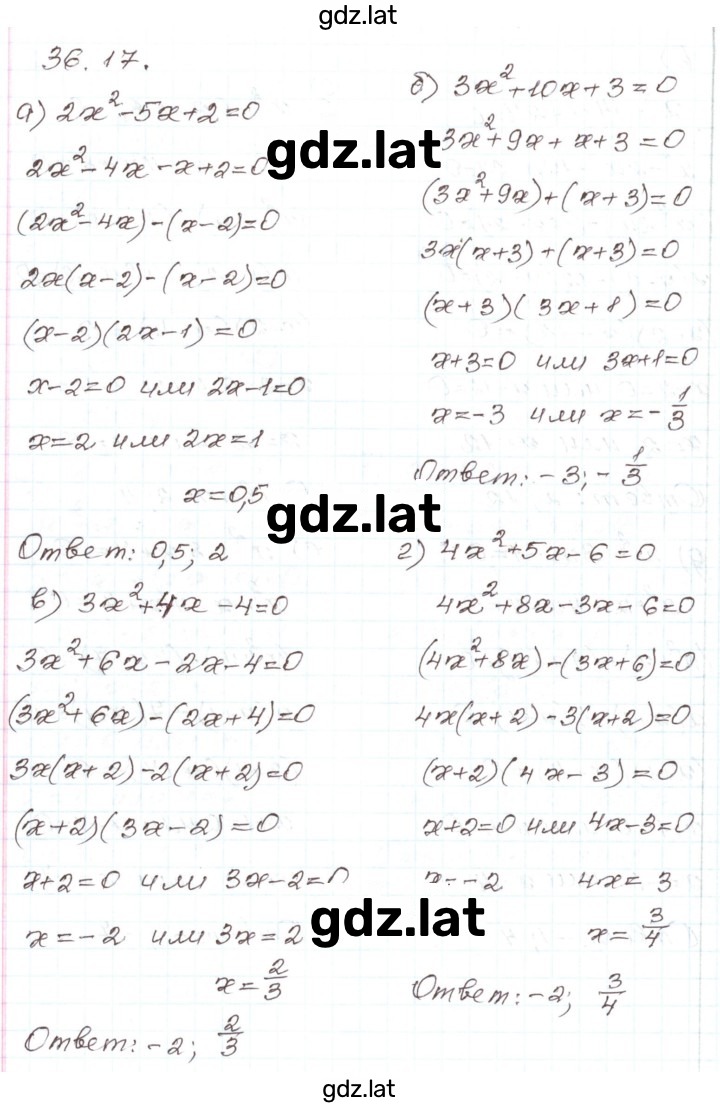 gdz.lat
36.17.
а) 2x²-5x+2=0
2x²-4x-x+2=0
(2x²-4x)-(x-2)=0
2x(x-2)-(x-2)=0
(x-2)(2x-1)=0
x-2=0 или 2x-1=0
x=2 или 2x=1
x=0,5
Ответ: 0,5; 2
в) 3x²+4x-4=0
3x²+6x-2x-4=0
(3x²+6x)-(2x+4)=0
3x(x+2)-2(x+2)=0
(x+2)(3x-2)=0
x+2=0 или 3x-2=0
x=-2 или 3x=2
x=2/3
Ответ: -2; 2/3
б) 3x²+10x+3=0
3x²+9x+x+3=0
(3x²+9x)+(x+3)=0
3x(x+3)+(x+3)=0
(x+3)(3x+1)=0
x+3=0 или 3x+1=0
x=-3 или x=-1/3
Ответ: -3; -1/3
г) 4x²+5x-6=0
4x²+8x-3x-6=0
(4x²+8x)-(3x+6)=0
4x(x+2)-3(x+2)=0
(x+2)(4x-3)=0
x+2=0 или 4x-3=0
x=-2 4x=3
x=3/4
Ответ: -2; 3/4
gdz.lat
gdz.lat
gdz.lat
gdz.lat